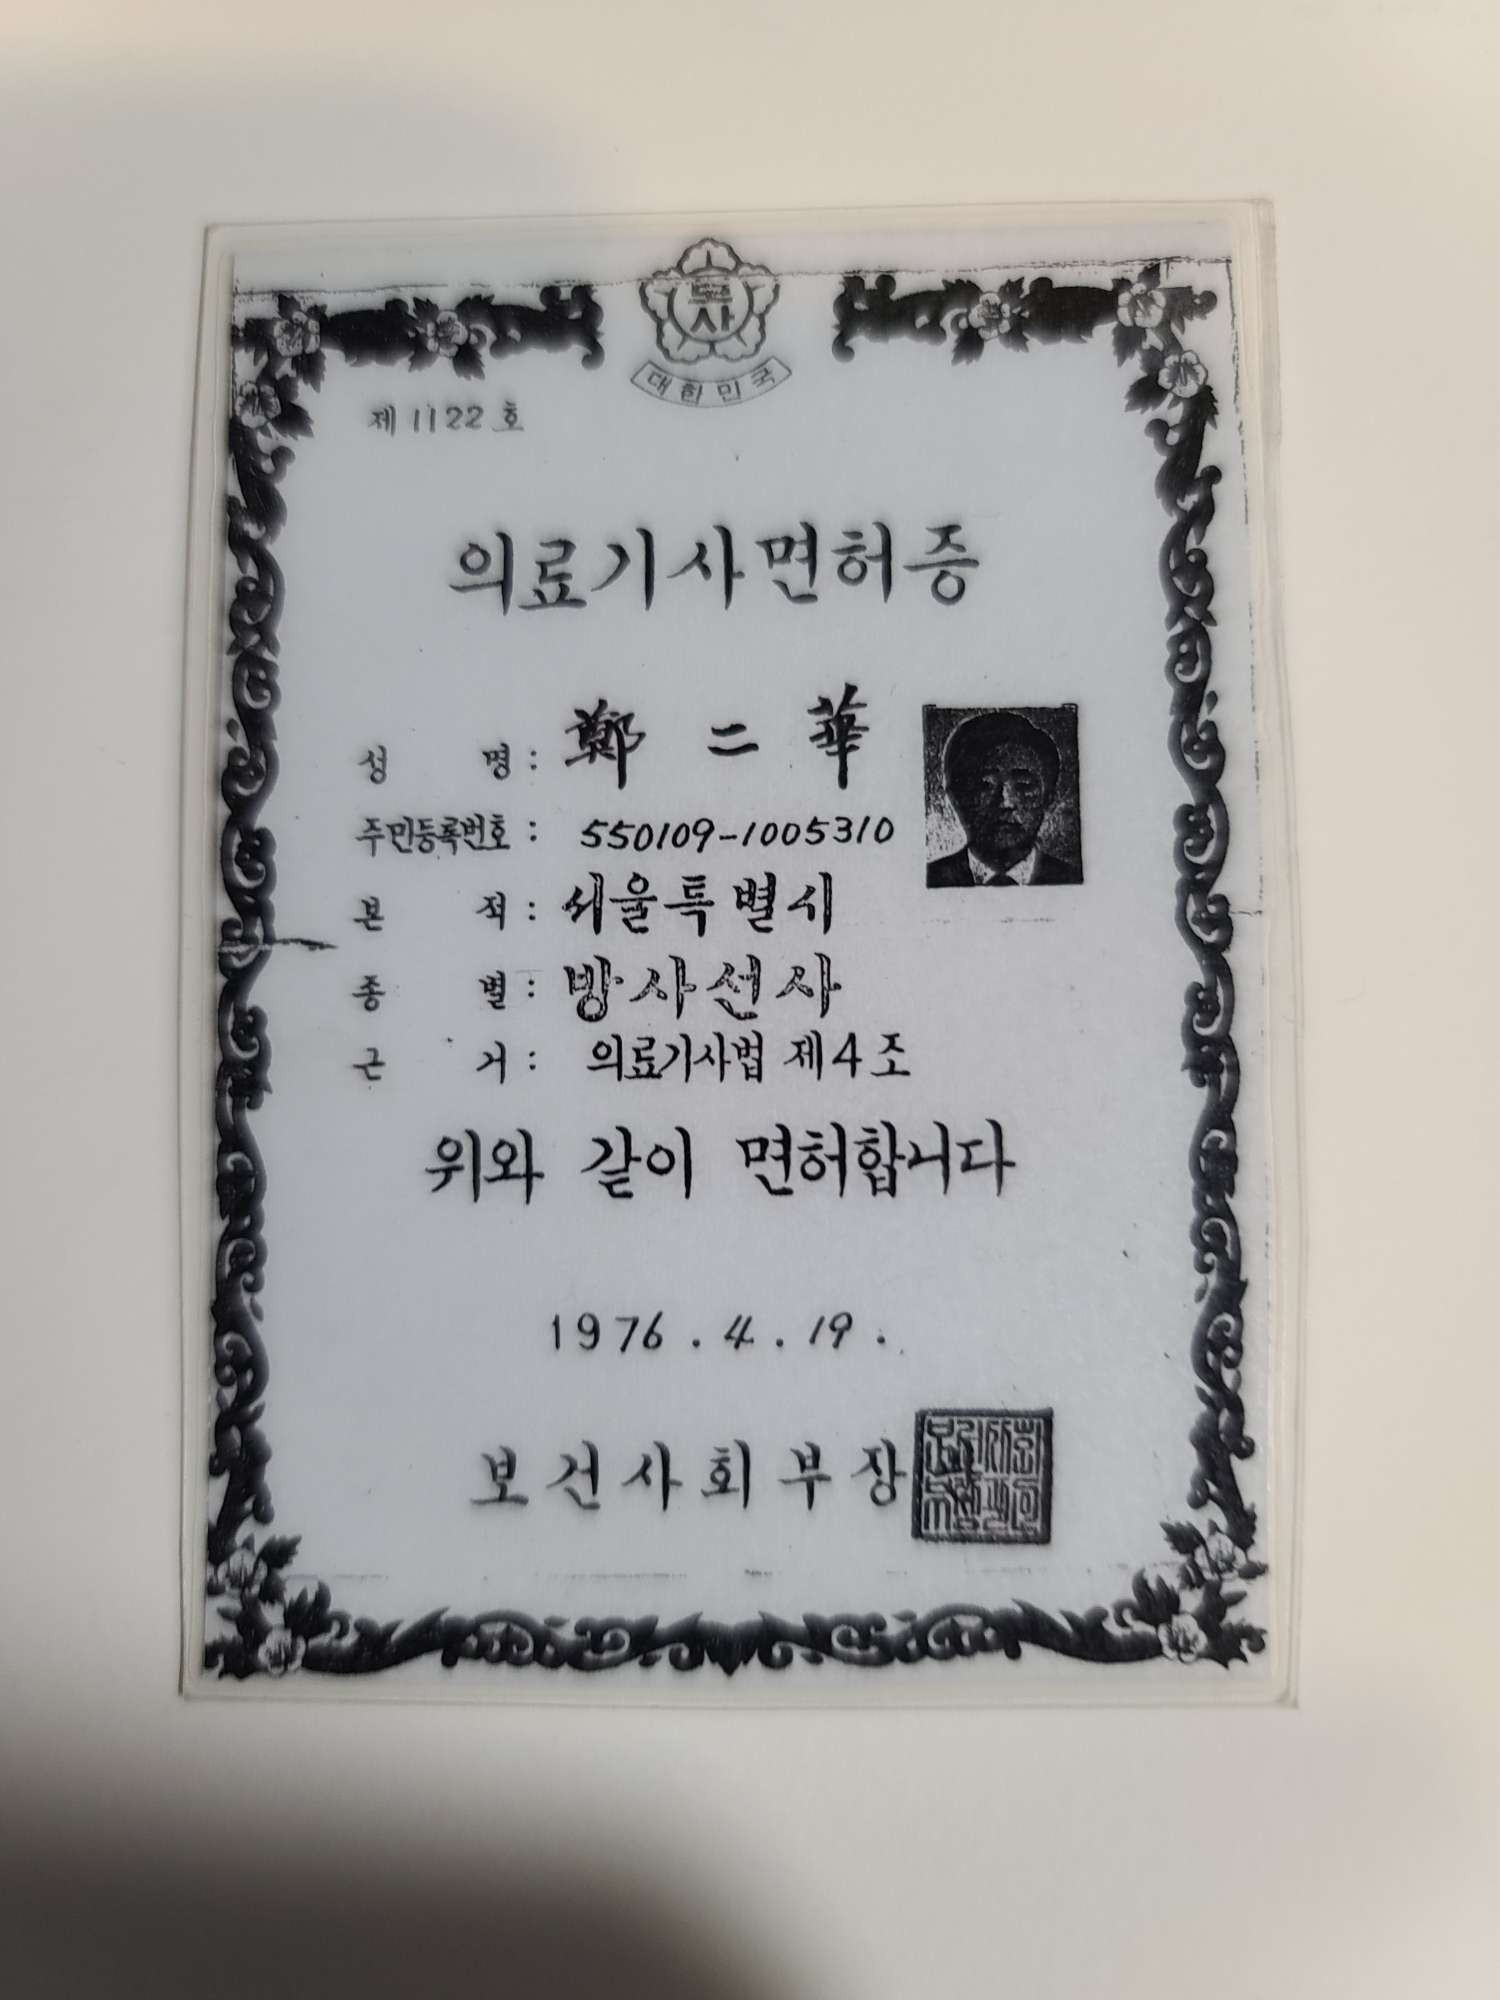 복
사
대한민국
제 1122 호
의료기사면허증
성 명 : 鄭 二 華
주민등록번호 : 550109-1005310
본 적 : 서울특별시
종 별 : 방사선사
근 거 : 의료기사법 제4조
위와 같이 면허합니다
1976 . 4 . 19 .
보건사회부장